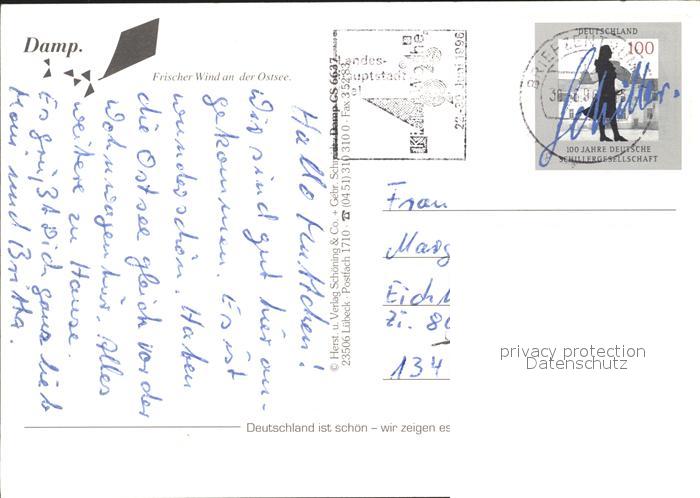 Damp.
Frischer Wind an der Ostsee.
Hallo Muttchen!
Wir sind gut hier an-
gekommen. Es ist
wunderschön. Haben
die Ostsee gleich vor der
Wohnwagentür. Alles
weitere zu Hause.
Es grüßt Dich ganz lieb
und Britta.
© Herst. u. Verlag Schöning & Co. + Gebr. Schmidt Damp CS 6637
23506 Lübeck · Postfach 1710 · ☎ (04 51) 310 310 0 · Fax 3
Landes-
hauptstadt
Kiel
Kieler Woche
Juni 1996
BRIEFZENTRUM
DEUTSCHLAND
100
Schiller
100 JAHRE DEUTSCHE
SCHILLERGESELLSCHAFT
Frau
Marg
Eich
Zi. 80
134
privacy protection
Datenschutz
Deutschland ist schön – wir zeigen es